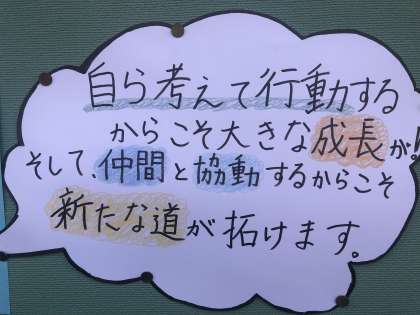 自ら考えて行動する
からこそ大きな成長が!
そして、仲間と協動するからこそ
新たな道が拓けます。